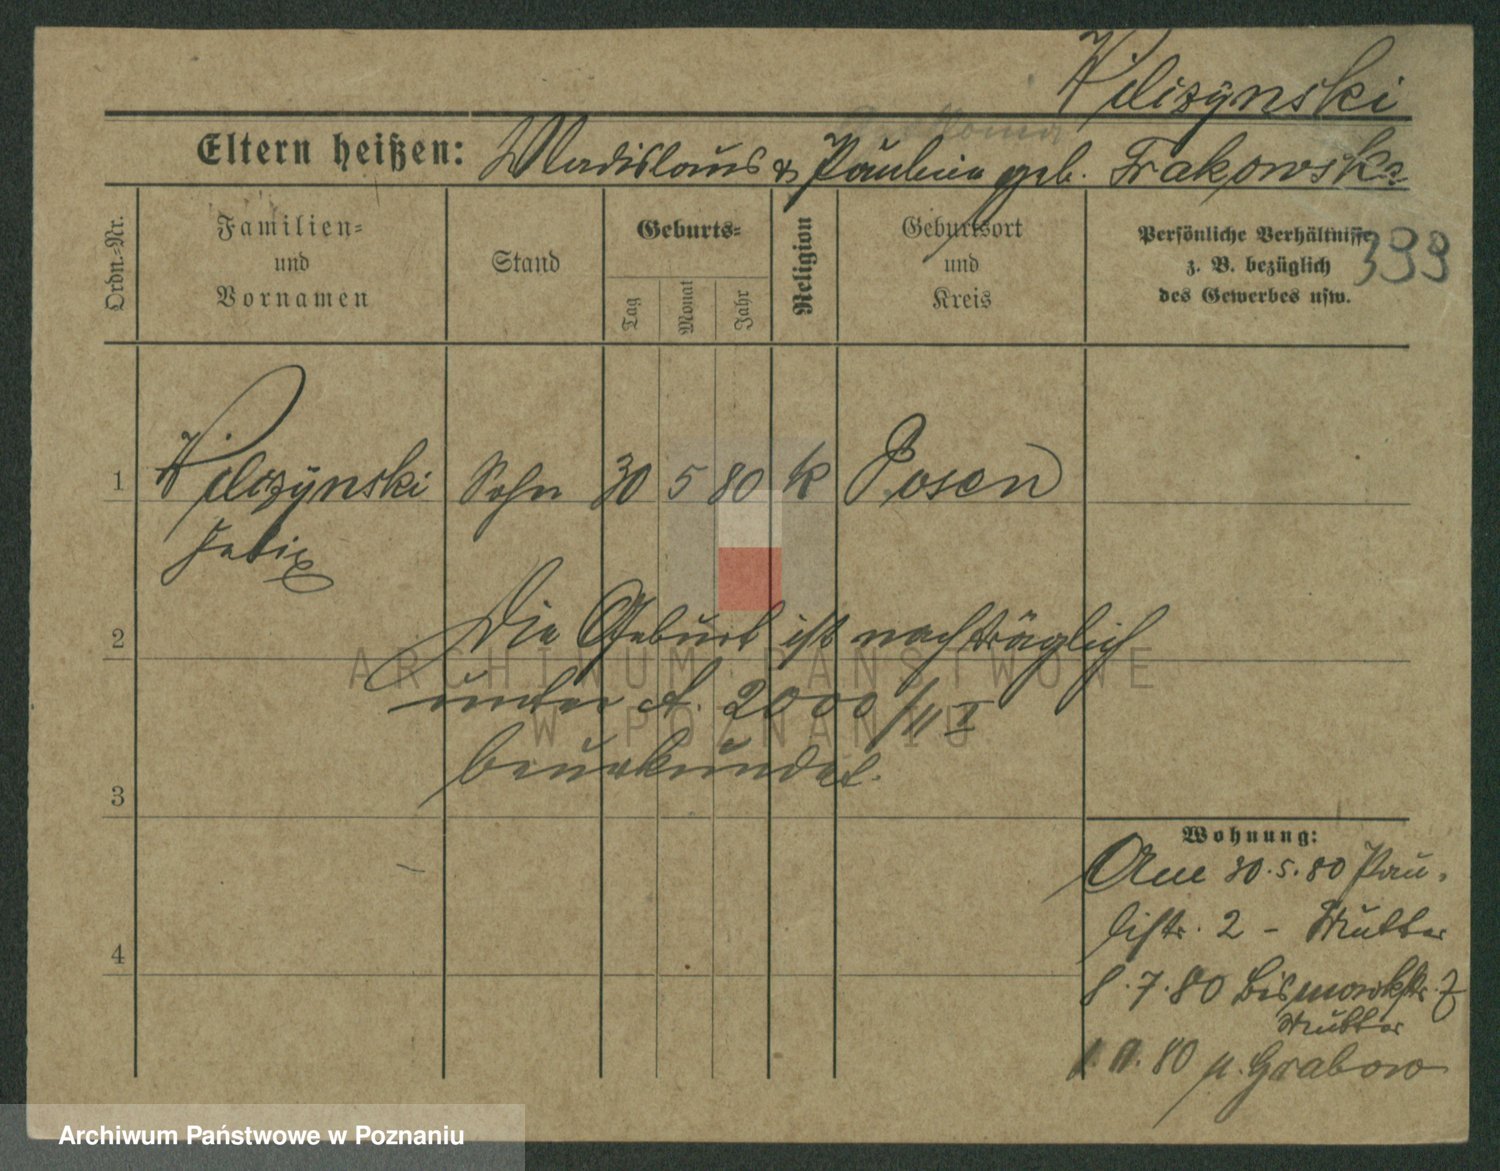 Kilizynski
Eltern heißen: Wladislaus & Pauline geb. Frakowska
Ordn.-Nr.
Familien-
und
Vornamen
Stand
Geburts-
Tag
Monat
Jahr
Religion
Geburtsort
und
Kreis
Persönliche Verhältnisse
z. B. bezüglich
des Gewerbes usw.
399
1 Kilizynski Sohn 30 5 80 k Posen
Felix
Die Geburt ist nachträglich
2
unter A. 2000/II I
beurkundet.
3
4
Wohnung:
Am 30.5.80 Pau-
listr. 2 - Mutter
8.7.80 Bismarckstr. 7
Mutter
80 n. Grabow
ARCHIWUM PAŃSTWOWE
W POZNANIU
Archiwum Państwowe w Poznaniu